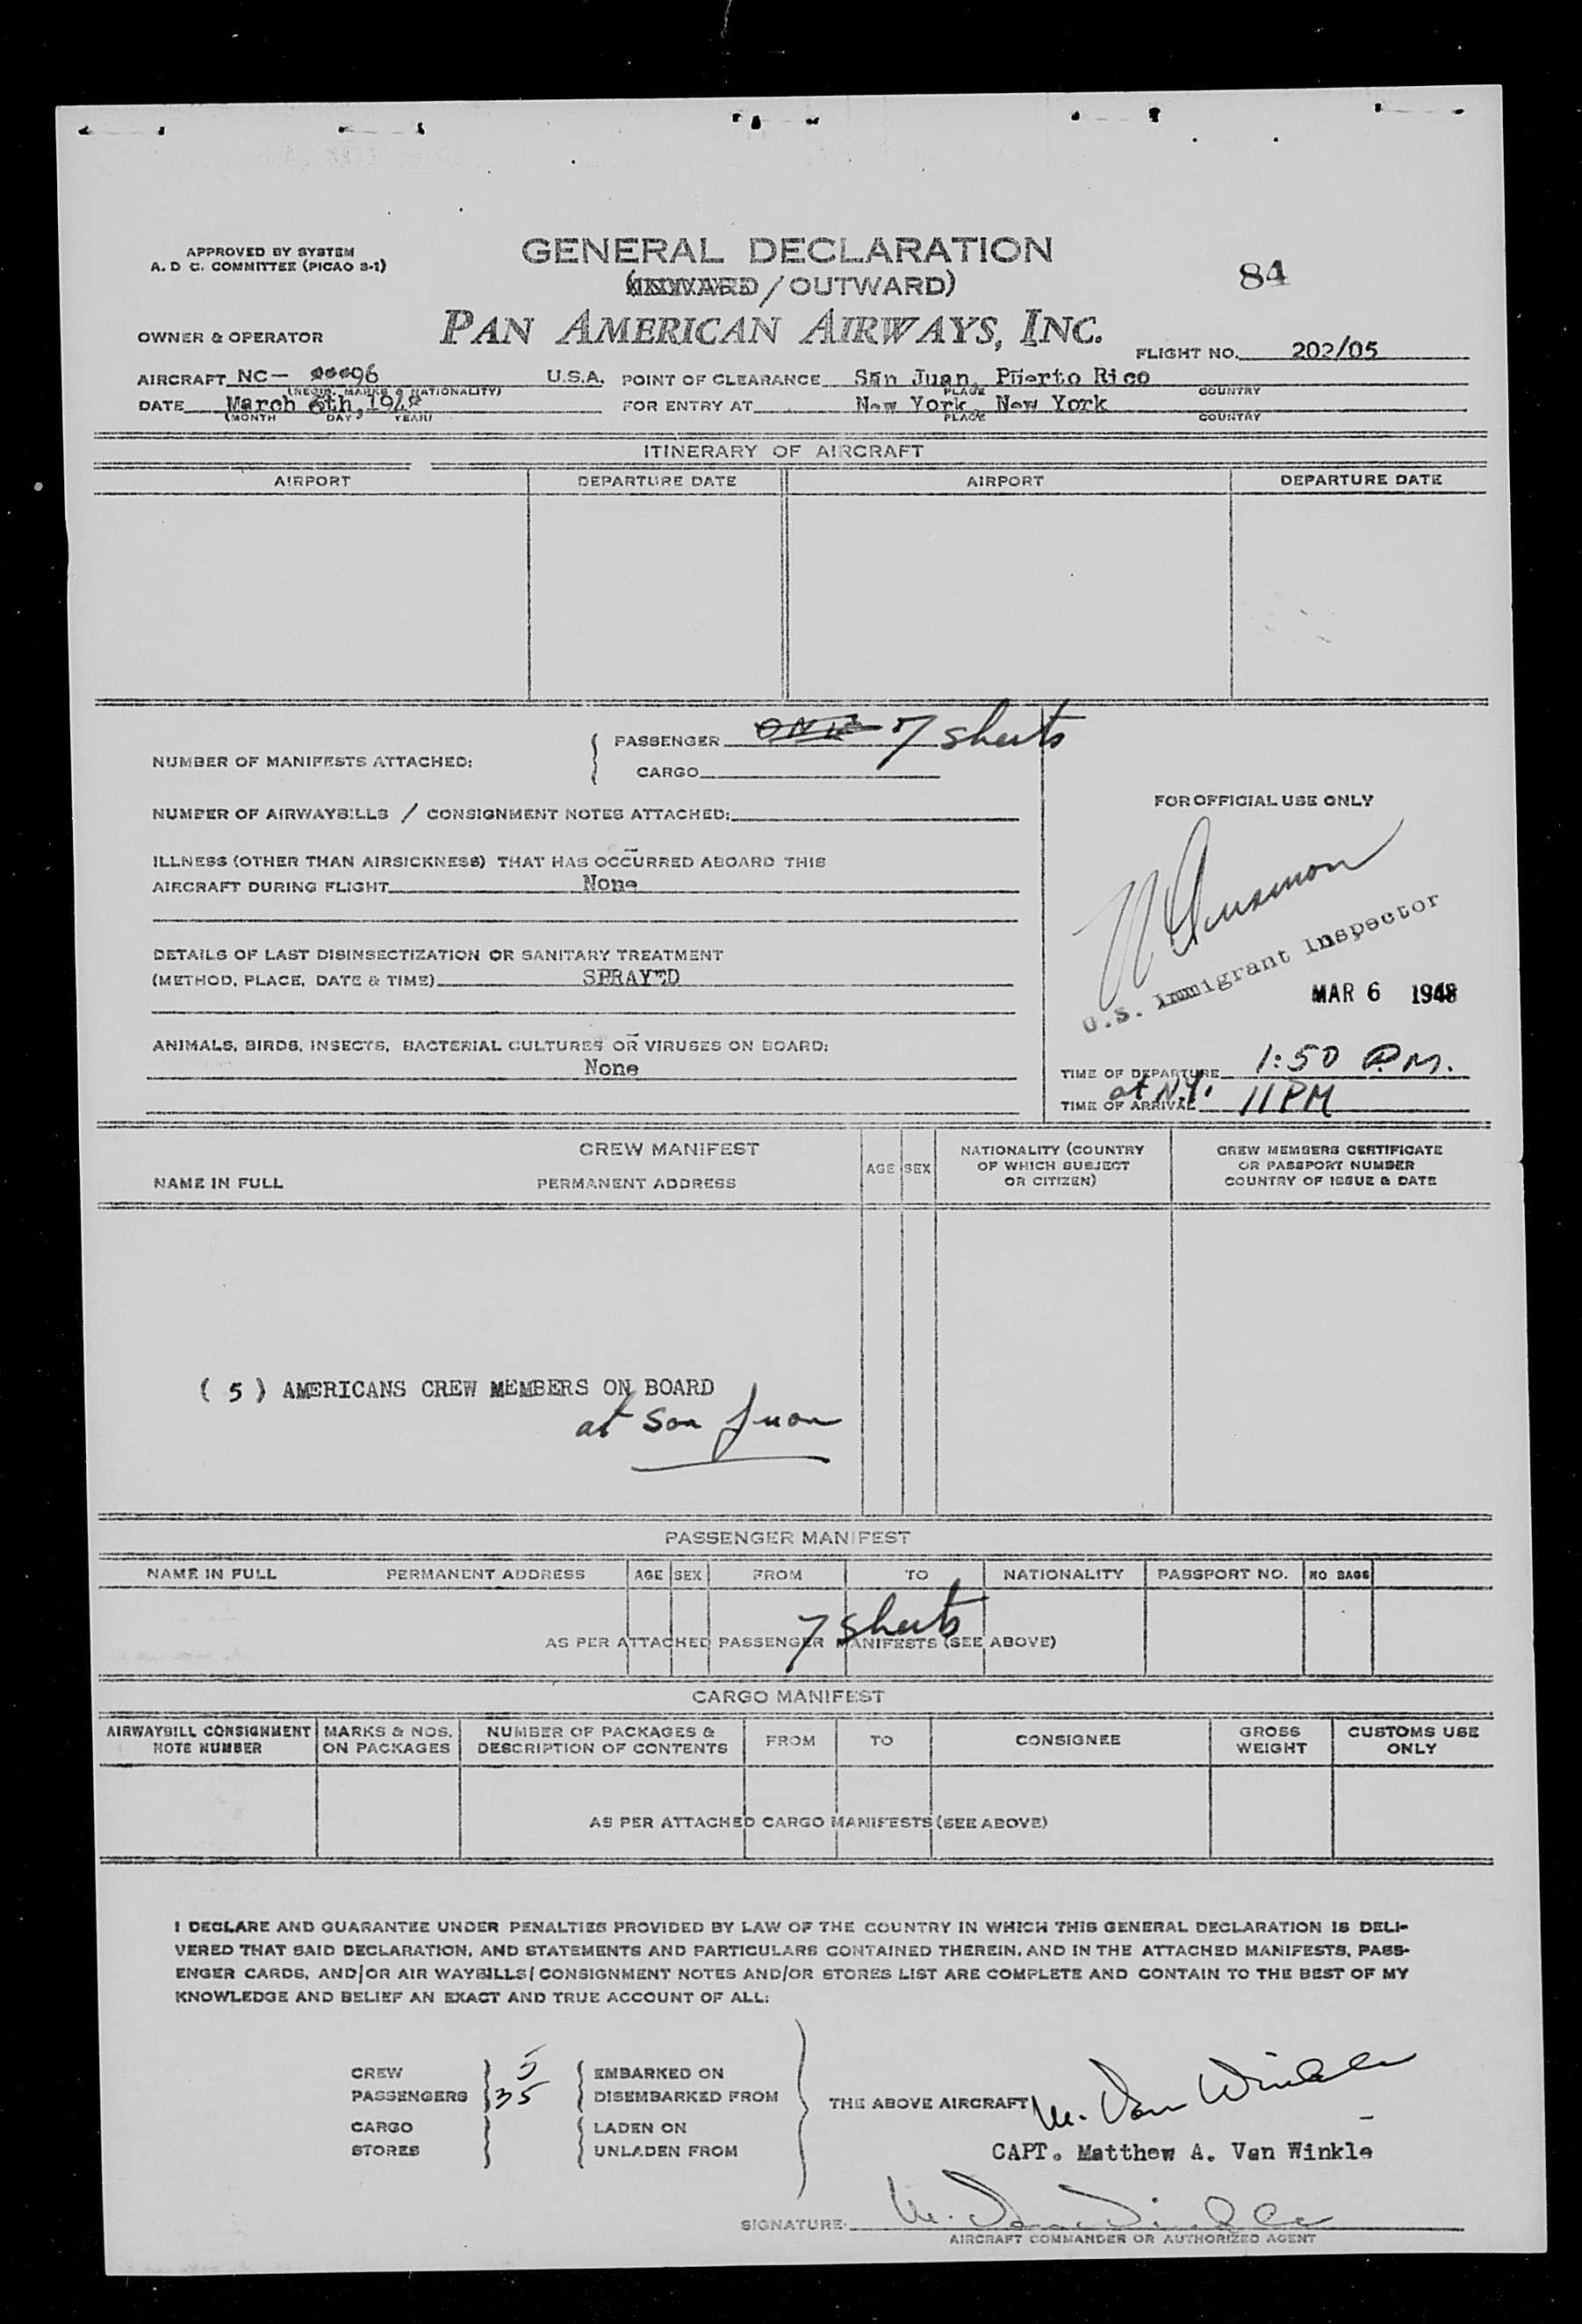 APPROVED BY SYSTEM
A. D C. COMMITTEE (PICAO S-1)
GENERAL DECLARATION
(INWARD / OUTWARD)
84
OWNER & OPERATOR
PAN AMERICAN AIRWAYS, INC.
FLIGHT NO. 202/05
AIRCRAFT NC- 96 U.S.A. POINT OF CLEARANCE San Juan, Puerto Rico
(REGIS. MARKS & NATIONALITY) PLACE COUNTRY
DATE March 6th, 1948 FOR ENTRY AT New York, New York
(MONTH DAY YEAR) PLACE COUNTRY
ITINERARY OF AIRCRAFT
AIRPORT DEPARTURE DATE AIRPORT DEPARTURE DATE
NUMBER OF MANIFESTS ATTACHED: PASSENGER ONE 7 sheets
CARGO
NUMBER OF AIRWAYBILLS / CONSIGNMENT NOTES ATTACHED:
FOR OFFICIAL USE ONLY
ILLNESS (OTHER THAN AIRSICKNESS) THAT HAS OCCURRED ABOARD THIS
AIRCRAFT DURING FLIGHT None
U.S. Immigrant Inspector
DETAILS OF LAST DISINSECTIZATION OR SANITARY TREATMENT
(METHOD, PLACE, DATE & TIME) SPRAYED
MAR 6 1948
ANIMALS, BIRDS, INSECTS, BACTERIAL CULTURES OR VIRUSES ON BOARD:
None
TIME OF DEPARTURE 1:50 P.M.
at N.Y.
TIME OF ARRIVAL 11 PM
CREW MANIFEST
NAME IN FULL PERMANENT ADDRESS AGE SEX NATIONALITY (COUNTRY OF WHICH SUBJECT OR CITIZEN) CREW MEMBERS CERTIFICATE OR PASSPORT NUMBER COUNTRY OF ISSUE & DATE
( 5 ) AMERICANS CREW MEMBERS ON BOARD
at San Juan
PASSENGER MANIFEST
NAME IN FULL PERMANENT ADDRESS AGE SEX FROM TO NATIONALITY PASSPORT NO. NO BAGS
7 sheets
AS PER ATTACHED PASSENGER MANIFESTS (SEE ABOVE)
CARGO MANIFEST
AIRWAYBILL CONSIGNMENT NOTE NUMBER MARKS & NOS. ON PACKAGES NUMBER OF PACKAGES & DESCRIPTION OF CONTENTS FROM TO CONSIGNEE GROSS WEIGHT CUSTOMS USE ONLY
AS PER ATTACHED CARGO MANIFESTS (SEE ABOVE)
I DECLARE AND GUARANTEE UNDER PENALTIES PROVIDED BY LAW OF THE COUNTRY IN WHICH THIS GENERAL DECLARATION IS DELI-
VERED THAT SAID DECLARATION, AND STATEMENTS AND PARTICULARS CONTAINED THEREIN, AND IN THE ATTACHED MANIFESTS, PASS-
ENGER CARDS, AND/OR AIR WAYBILLS/CONSIGNMENT NOTES AND/OR STORES LIST ARE COMPLETE AND CONTAIN TO THE BEST OF MY
KNOWLEDGE AND BELIEF AN EXACT AND TRUE ACCOUNT OF ALL:
CREW 5 EMBARKED ON
PASSENGERS 35 DISEMBARKED FROM
THE ABOVE AIRCRAFT M. Van Winkle
CARGO LADEN ON
STORES UNLADEN FROM
CAPT. Matthew A. Van Winkle
SIGNATURE: M. Van Winkle
AIRCRAFT COMMANDER OR AUTHORIZED AGENT